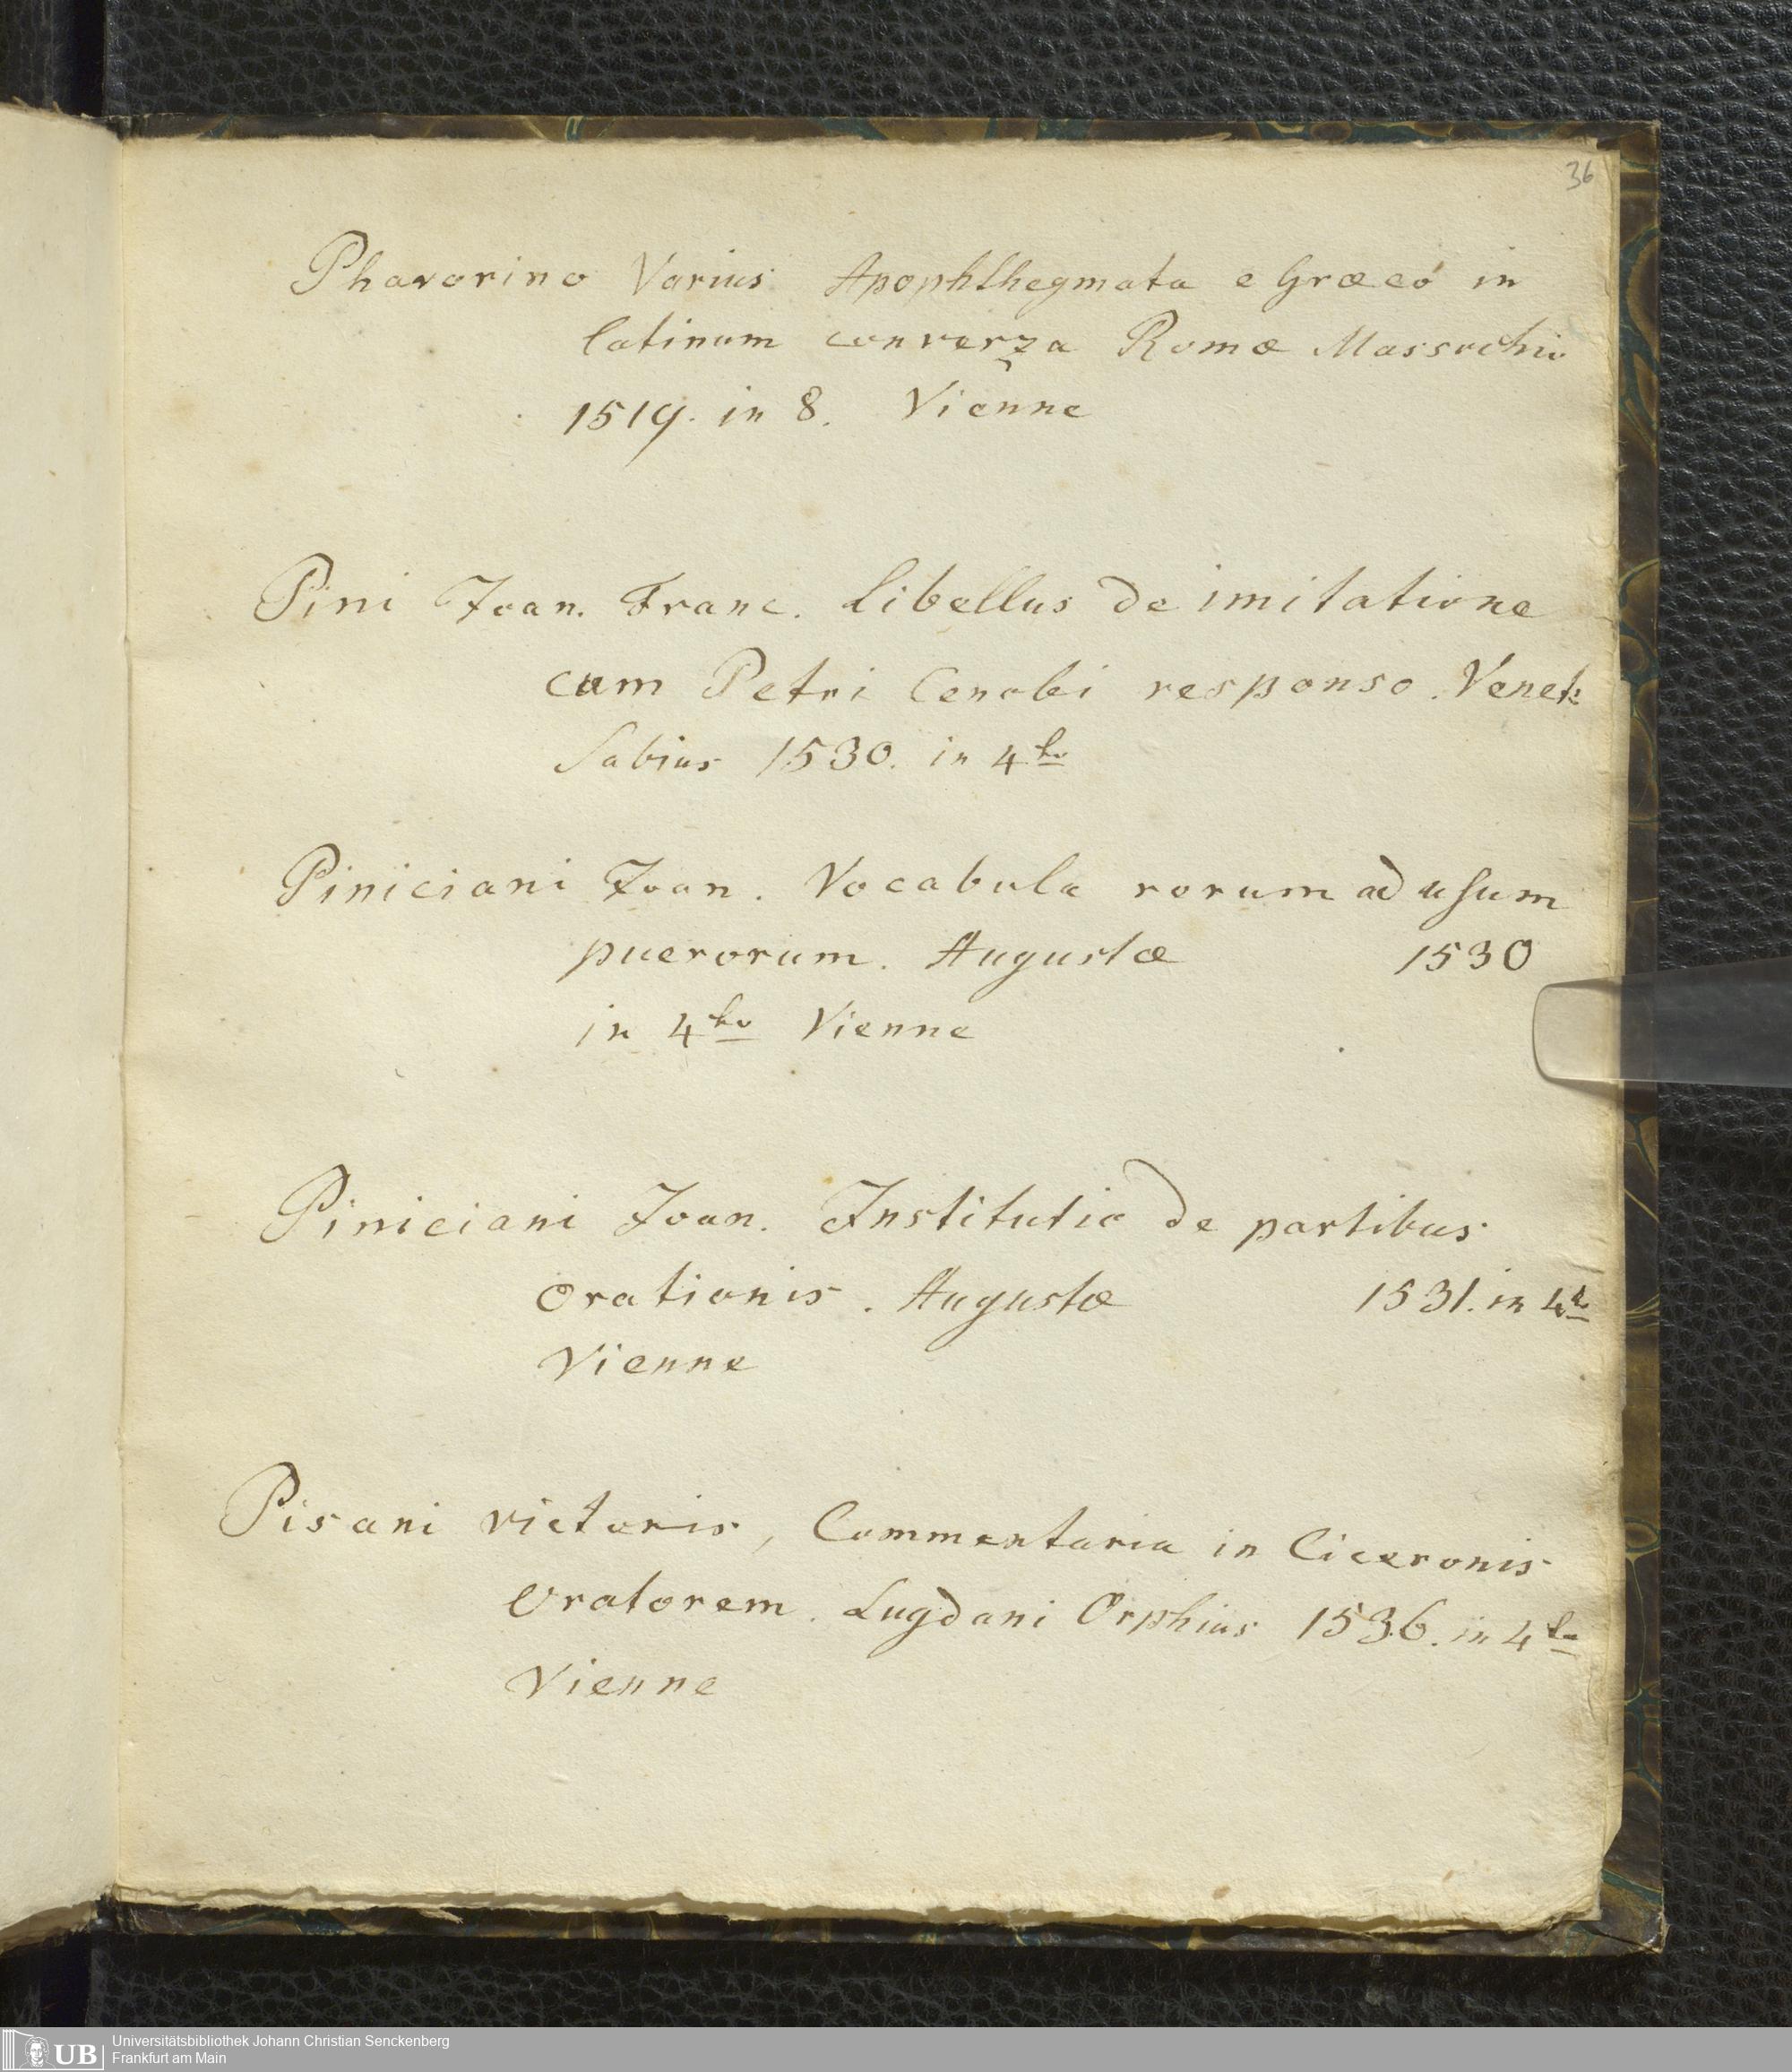 36
Phavorino Varius Apophthegmata e Græco in
latinum converza Romæ Massochio
1519. in 8. Vienne
Pini Joan. Franc. Libellus de imitatione
cum Petri Cenobi responso. Venet:
Sabius 1530. in 4to
Piniciani Joan. Vocabula rorum ad usum
puerorum. Augustæ 1530
in 4to Vienne
Piniciani Joan. Institutio de partibus
orationis. Augustæ 1531. in 4to
Vienne
Pisani victoris, Commentaria in Ciceronis
Oratorem. Lugdani Orphius 1536. in 4to
Vienne
UB Universitätsbibliothek Johann Christian Senckenberg
Frankfurt am Main